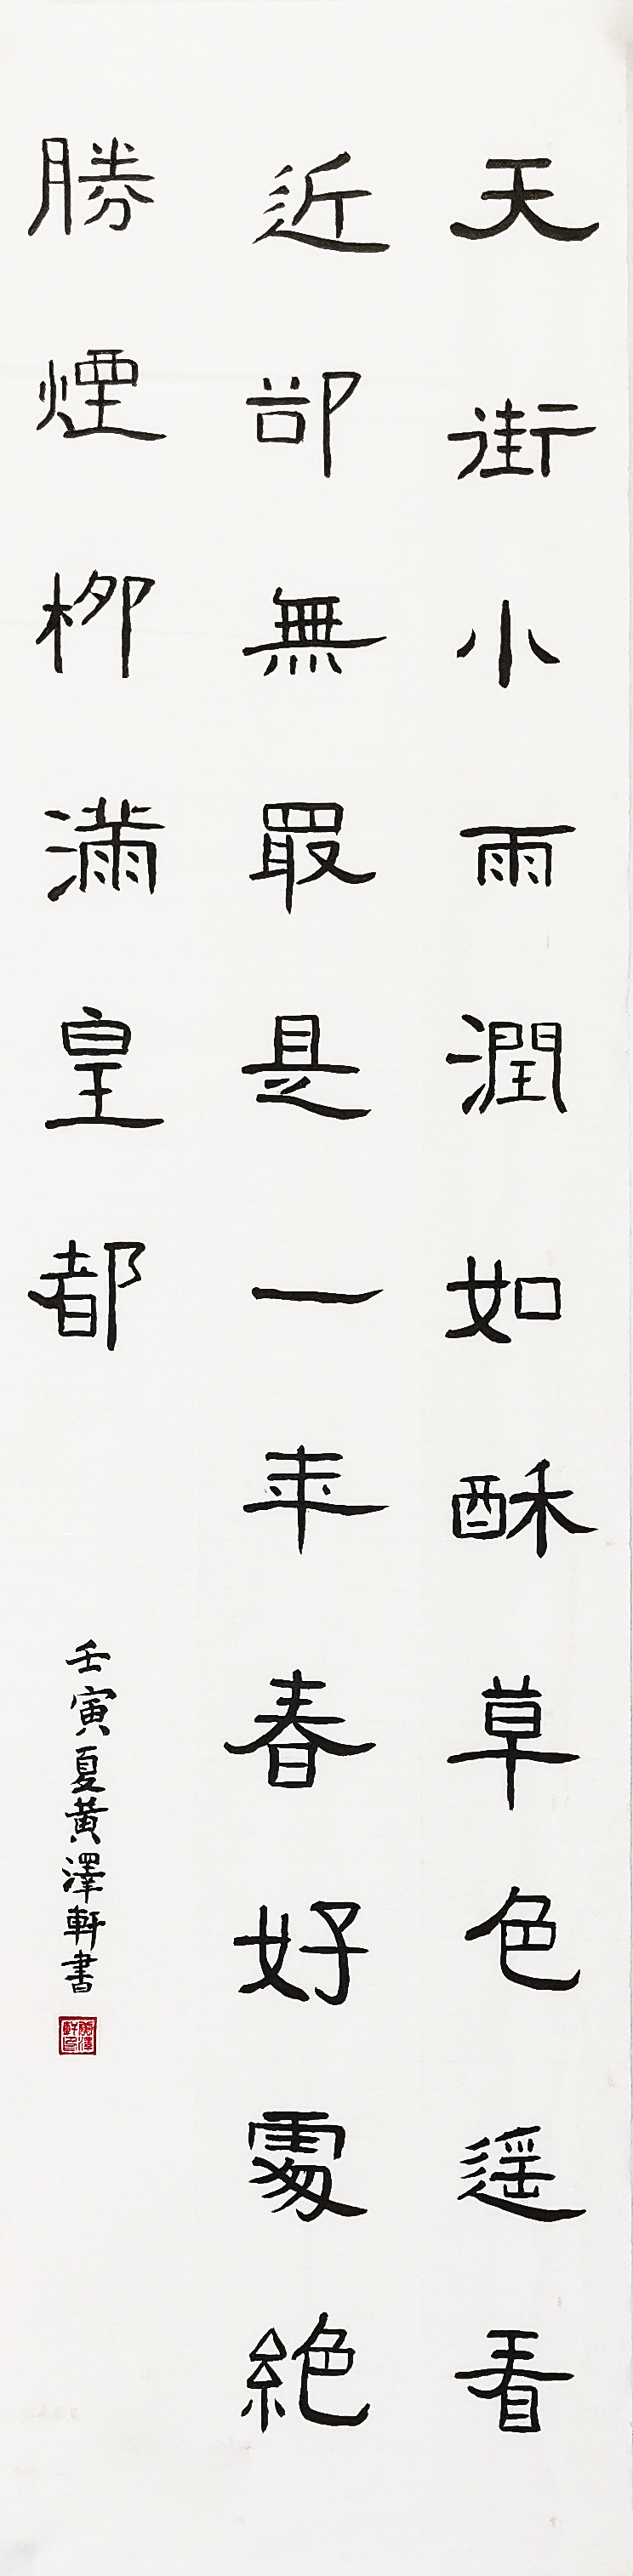 天街小雨潤如酥草色遥看
近郤無最是一年春好處絶
勝煙柳滿皇都
壬寅夏黃澤軒書